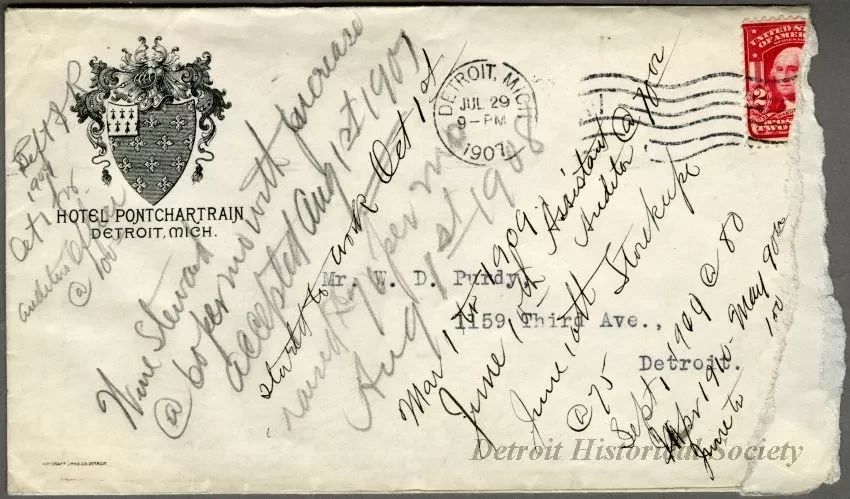 HOTEL PONTCHARTRAIN
DETROIT, MICH.
DETROIT, MICH.
JUL 29
9-PM
1907
UNITED STATES
OF AMERICA
2
TWO
Mr. W. D. Purdy,
1159 Third Ave.,
Detroit.
Wine Steward
@ 60 per mo with increase
accepted Aug 1st 1907
started to work Oct 1st
raised per mo
Aug 1st 1908
Mar 1 to 1909
June 15th Assistant Auditor @
June 16th Storekeepr
@ 75
Sept 1, 1909 @ 80
Apr 1910 - May 90
June to 100
Sept
Oct 1
auditors Office
@ 100
Detroit Historical Society